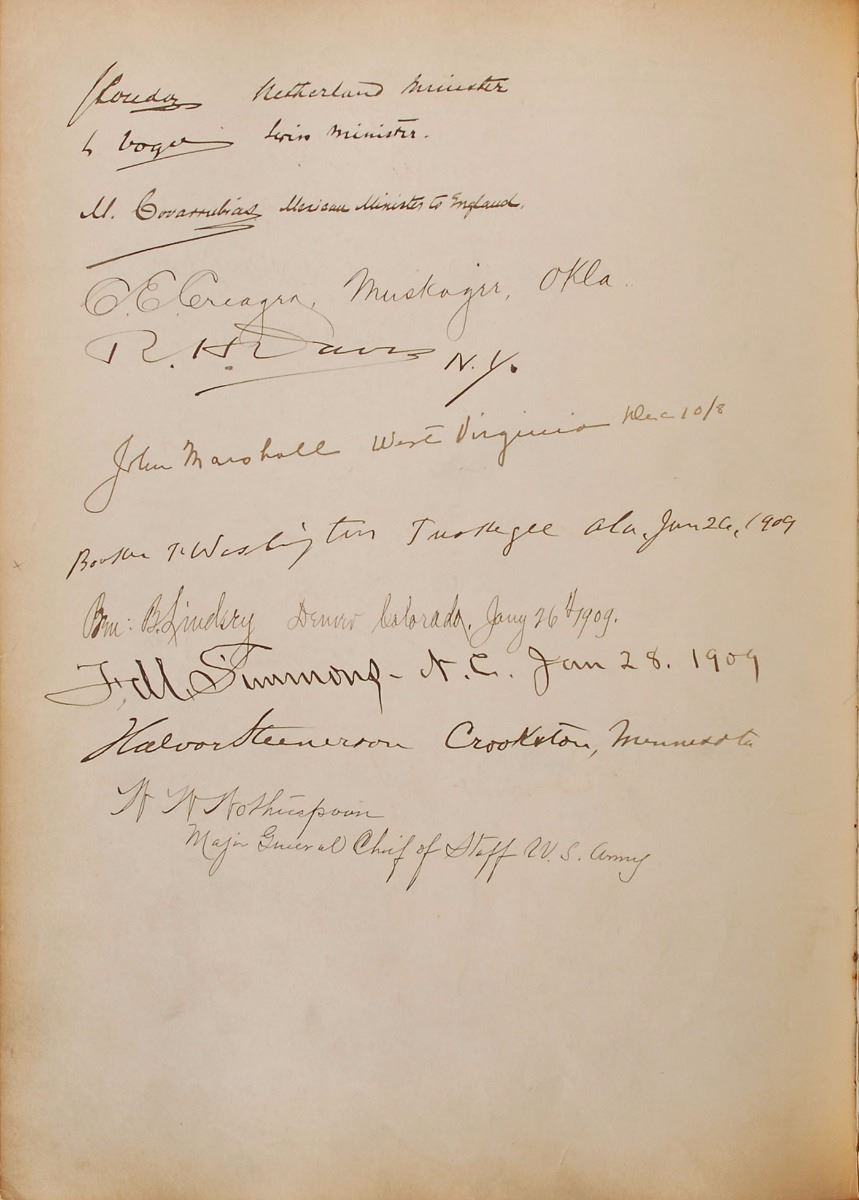 J Loudon Netherland Minister
L Vogel Swiss Minister.
M. Covarrubias Mexican Minister to England.
C. E. Creager, Muskogee, Okla.
R. H. Davis N.Y.
John Marshall West Virginia Dec 10/8
Booker T. Washington Tuskegee Ala, Jan 26, 1909
Ben: B. Lindsey Denver Colorado, Jany 26th 1909.
F. M. Simmons - N.C. Jan 28. 1909
Halvor Steenerson Crookston, Minnesota
W W Wotherspoon
Major General Chief of Staff U.S. Army